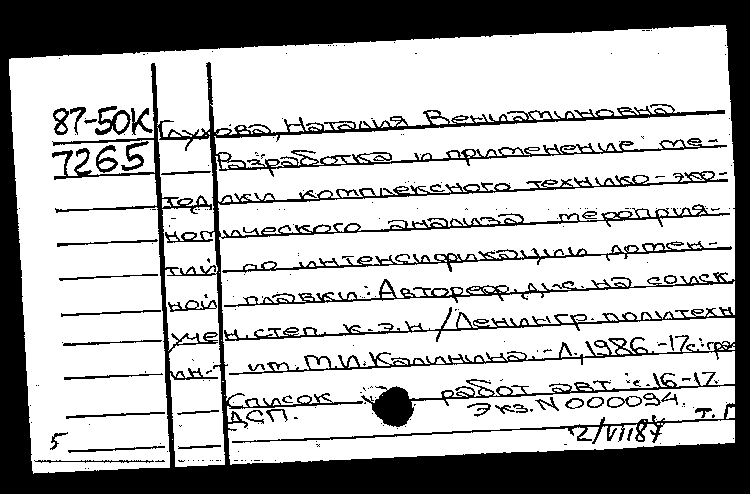 87-50К
7265
Глухова, Наталия Вениаминовна
Разработка и применение ме-
тодики комплексного технико-эко-
номического анализа мероприя-
тий по интенсификации домен-
ной плавки: Автореф. дис. на соиск
учен. степ. к.э.н / Ленингр. политехн
ин-т им. М.И. Калинина. - Л., 1986. - 17с.:
Список работ авт.: с. 16-17.
ДСП. Экз. N 000094.
5 2/VII87 т. Г